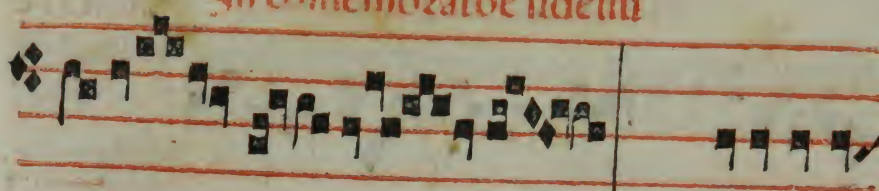 In comemoratōe fideliū